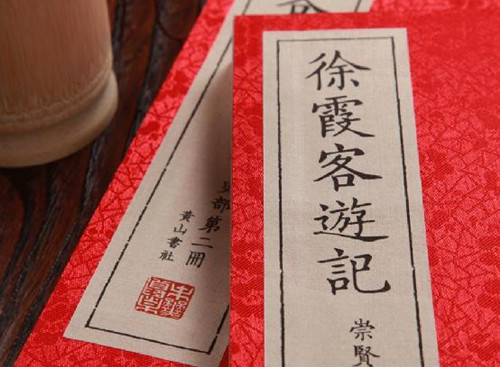 徐霞客遊記
崇賢
部第二冊
黃山書社